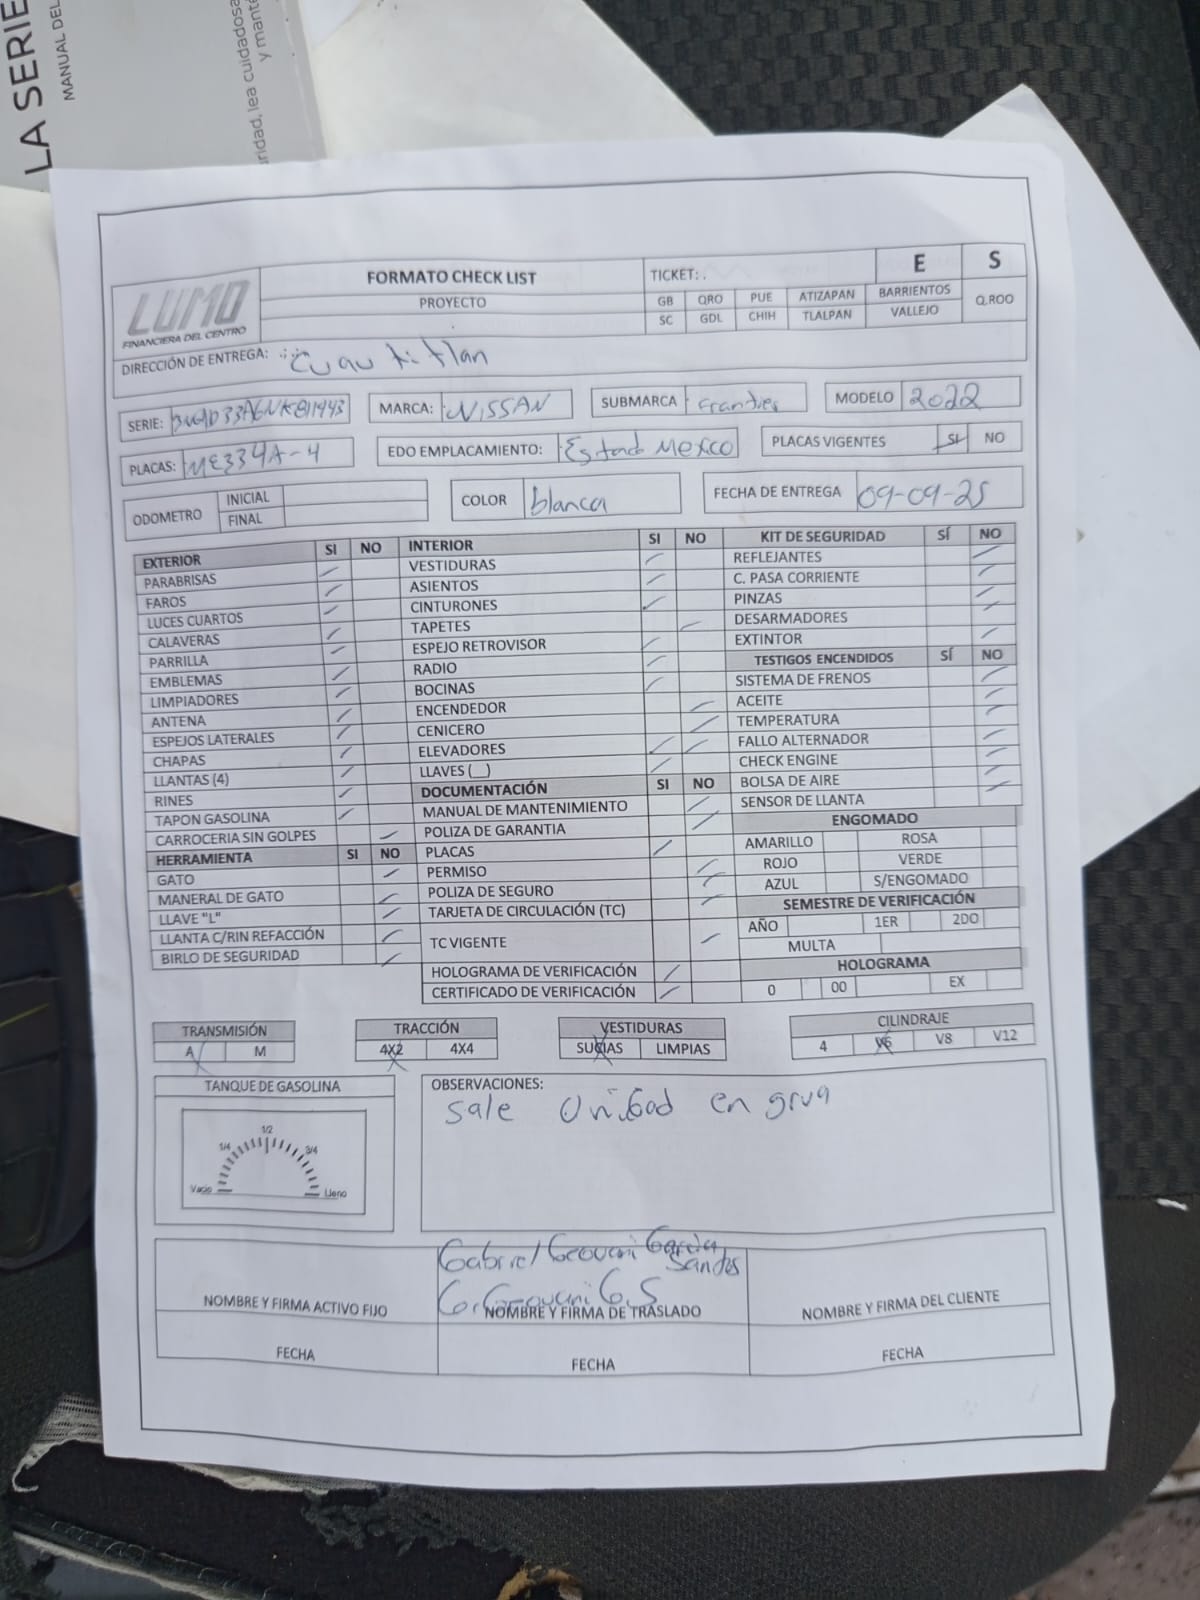 LA SERIE
MANUAL DEL
ridad, lea cuidadosa
y mante
LUMO
FINANCIERA DEL CENTRO
FORMATO CHECK LIST
PROYECTO
TICKET: .
E
S
GB QRO PUE ATIZAPAN BARRIENTOS
SC GDL CHIH TLALPAN VALLEJO
Q.ROO
DIRECCIÓN DE ENTREGA: Cuautitlan
SERIE:
MARCA: NISSAN
SUBMARCA
MODELO 2022
PLACAS: ME334A-4
EDO EMPLACAMIENTO: Estado Mexico
PLACAS VIGENTES SI NO
ODOMETRO
INICIAL
FINAL
COLOR blanca
FECHA DE ENTREGA 09-09-25
EXTERIOR SI NO
PARABRISAS
FAROS
LUCES CUARTOS
CALAVERAS
PARRILLA
EMBLEMAS
LIMPIADORES
ANTENA
ESPEJOS LATERALES
CHAPAS
LLANTAS (4)
RINES
TAPON GASOLINA
CARROCERIA SIN GOLPES
HERRAMIENTA SI NO
GATO
MANERAL DE GATO
LLAVE "L"
LLANTA C/RIN REFACCIÓN
BIRLO DE SEGURIDAD
INTERIOR SI NO
VESTIDURAS
ASIENTOS
CINTURONES
TAPETES
ESPEJO RETROVISOR
RADIO
BOCINAS
ENCENDEDOR
CENICERO
ELEVADORES
LLAVES (__)
DOCUMENTACIÓN SI NO
MANUAL DE MANTENIMIENTO
POLIZA DE GARANTIA
PLACAS
PERMISO
POLIZA DE SEGURO
TARJETA DE CIRCULACIÓN (TC)
TC VIGENTE
HOLOGRAMA DE VERIFICACIÓN
CERTIFICADO DE VERIFICACIÓN
KIT DE SEGURIDAD SÍ NO
REFLEJANTES
C. PASA CORRIENTE
PINZAS
DESARMADORES
EXTINTOR
TESTIGOS ENCENDIDOS SÍ NO
SISTEMA DE FRENOS
ACEITE
TEMPERATURA
FALLO ALTERNADOR
CHECK ENGINE
BOLSA DE AIRE
SENSOR DE LLANTA
ENGOMADO
AMARILLO ROSA
ROJO VERDE
AZUL S/ENGOMADO
SEMESTRE DE VERIFICACIÓN
AÑO 1ER 2DO
MULTA
HOLOGRAMA
0 00 EX
TRANSMISIÓN
A M
TRACCIÓN
4X2 4X4
VESTIDURAS
SUCIAS LIMPIAS
CILINDRAJE
4 V6 V8 V12
TANQUE DE GASOLINA
1/2
1/4 3/4
Vacio Lleno
OBSERVACIONES:
Sale Unidad en grua
Gabriel Geovani Garcia
Santos
G. Geovani G.S
NOMBRE Y FIRMA ACTIVO FIJO
NOMBRE Y FIRMA DE TRASLADO
NOMBRE Y FIRMA DEL CLIENTE
FECHA
FECHA
FECHA